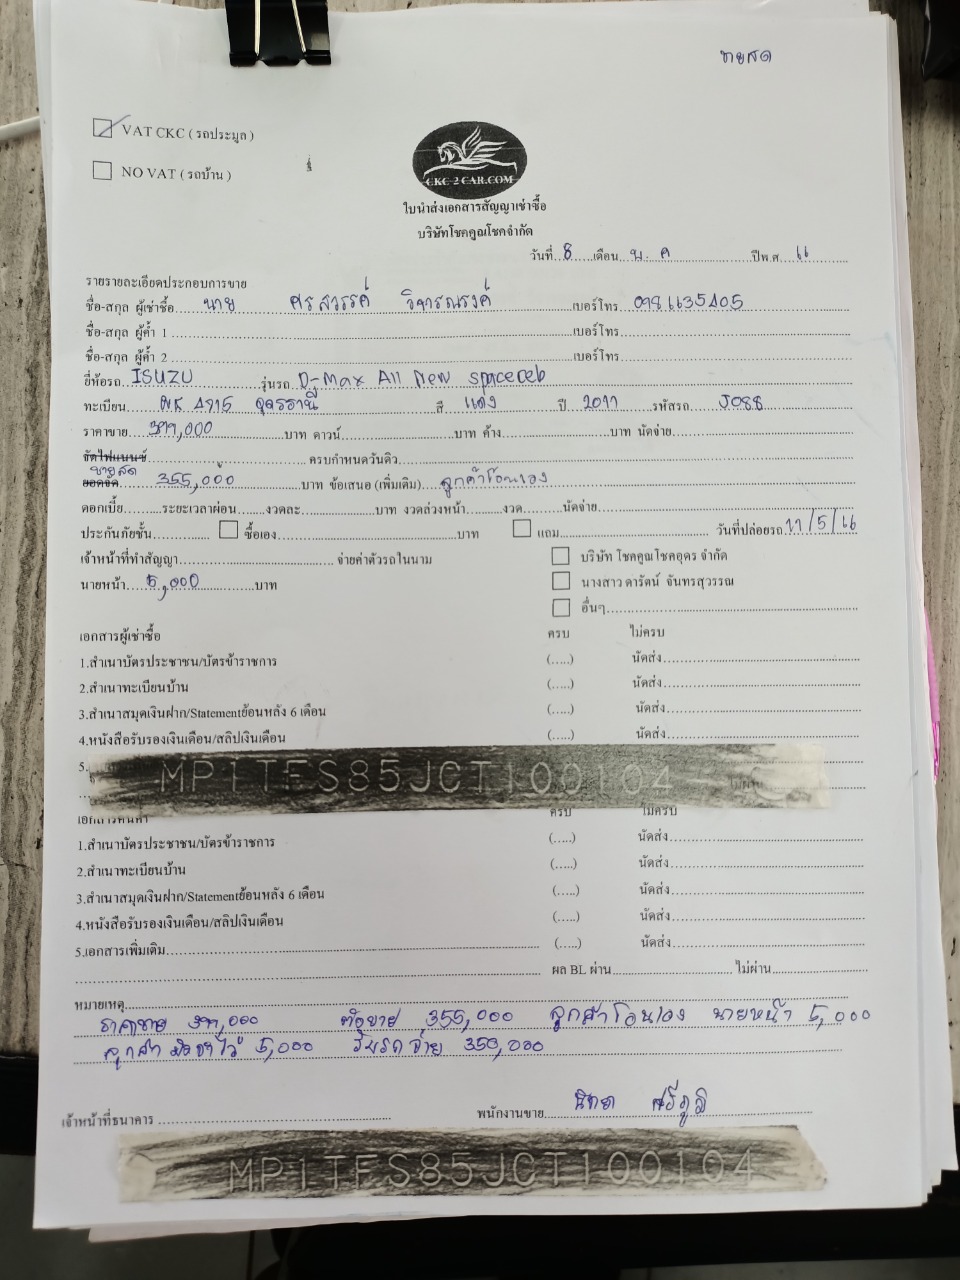 ขายสด
VAT CKC ( รถประมูล )
NO VAT ( รถบ้าน )
CKC 2 CAR.COM
ใบนำส่งเอกสารสัญญาเช่าซื้อ
บริษัทโชคคูณโชคจำกัด
วันที่ 8 เดือน พ.ค ปีพ.ศ 66
รายรายละเอียดประกอบการขาย
ชื่อ-สกุล ผู้เช่าซื้อ นาย ศรสวรรค์ เบอร์โทร
ชื่อ-สกุล ผู้ค้ำ 1 เบอร์โทร
ชื่อ-สกุล ผู้ค้ำ 2 เบอร์โทร
ยี่ห้อรถ ISUZU รุ่นรถ D-Max All New spaceceb
ทะเบียน อุดรธานี สี แดง ปี 2011 รหัสรถ J088
ราคาขาย บาท ดาวน์ บาท ค้าง บาท นัดจ่าย
จัดไฟแนนซ์ ครบกำหนดวันดิว
ขายสด
ยอดจัด 355,000 บาท ข้อเสนอ (เพิ่มเติม) ลูกค้าโอนเอง
ดอกเบี้ย ระยะเวลาผ่อน งวดละ บาท งวดล่วงหน้า งวด นัดจ่าย
ประกันภัยชั้น ซื้อเอง บาท แถม วันที่ปล่อยรถ 11/5/66
เจ้าหน้าที่ทำสัญญา จ่ายค่าตัวรถในนาม บริษัท โชคคูณโชคอุดร จำกัด
นายหน้า 5,000 บาท นางสาว ดารัตน์ จันทรสุวรรณ
อื่นๆ
เอกสารผู้เช่าซื้อ ครบ ไม่ครบ
1.สำเนาบัตรประชาชน/บัตรข้าราชการ (.....) นัดส่ง
2.สำเนาทะเบียนบ้าน (.....) นัดส่ง
3.สำเนาสมุดเงินฝาก/Statementย้อนหลัง 6 เดือน (.....) นัดส่ง
4.หนังสือรับรองเงินเดือน/สลิปเงินเดือน (.....) นัดส่ง
5.
MP1TFS85JCT100104
ไม่ผ่าน
ครบ ไม่ครบ
1.สำเนาบัตรประชาชน/บัตรข้าราชการ (.....) นัดส่ง
2.สำเนาทะเบียนบ้าน (.....) นัดส่ง
3.สำเนาสมุดเงินฝาก/Statementย้อนหลัง 6 เดือน (.....) นัดส่ง
4.หนังสือรับรองเงินเดือน/สลิปเงินเดือน (.....) นัดส่ง
5.เอกสารเพิ่มเติม (.....) นัดส่ง
ผล BL ผ่าน ไม่ผ่าน
หมายเหตุ
ราคาขาย ต่อขาย 355,000 ลูกค้าโอนเอง นายหน้า 5,000
ลูกค้า มัดจำไว้ 5,000 รับรถจ่าย 350,000
เจ้าหน้าที่ธนาคาร พนักงานขาย
MP1TFS85JCT100104